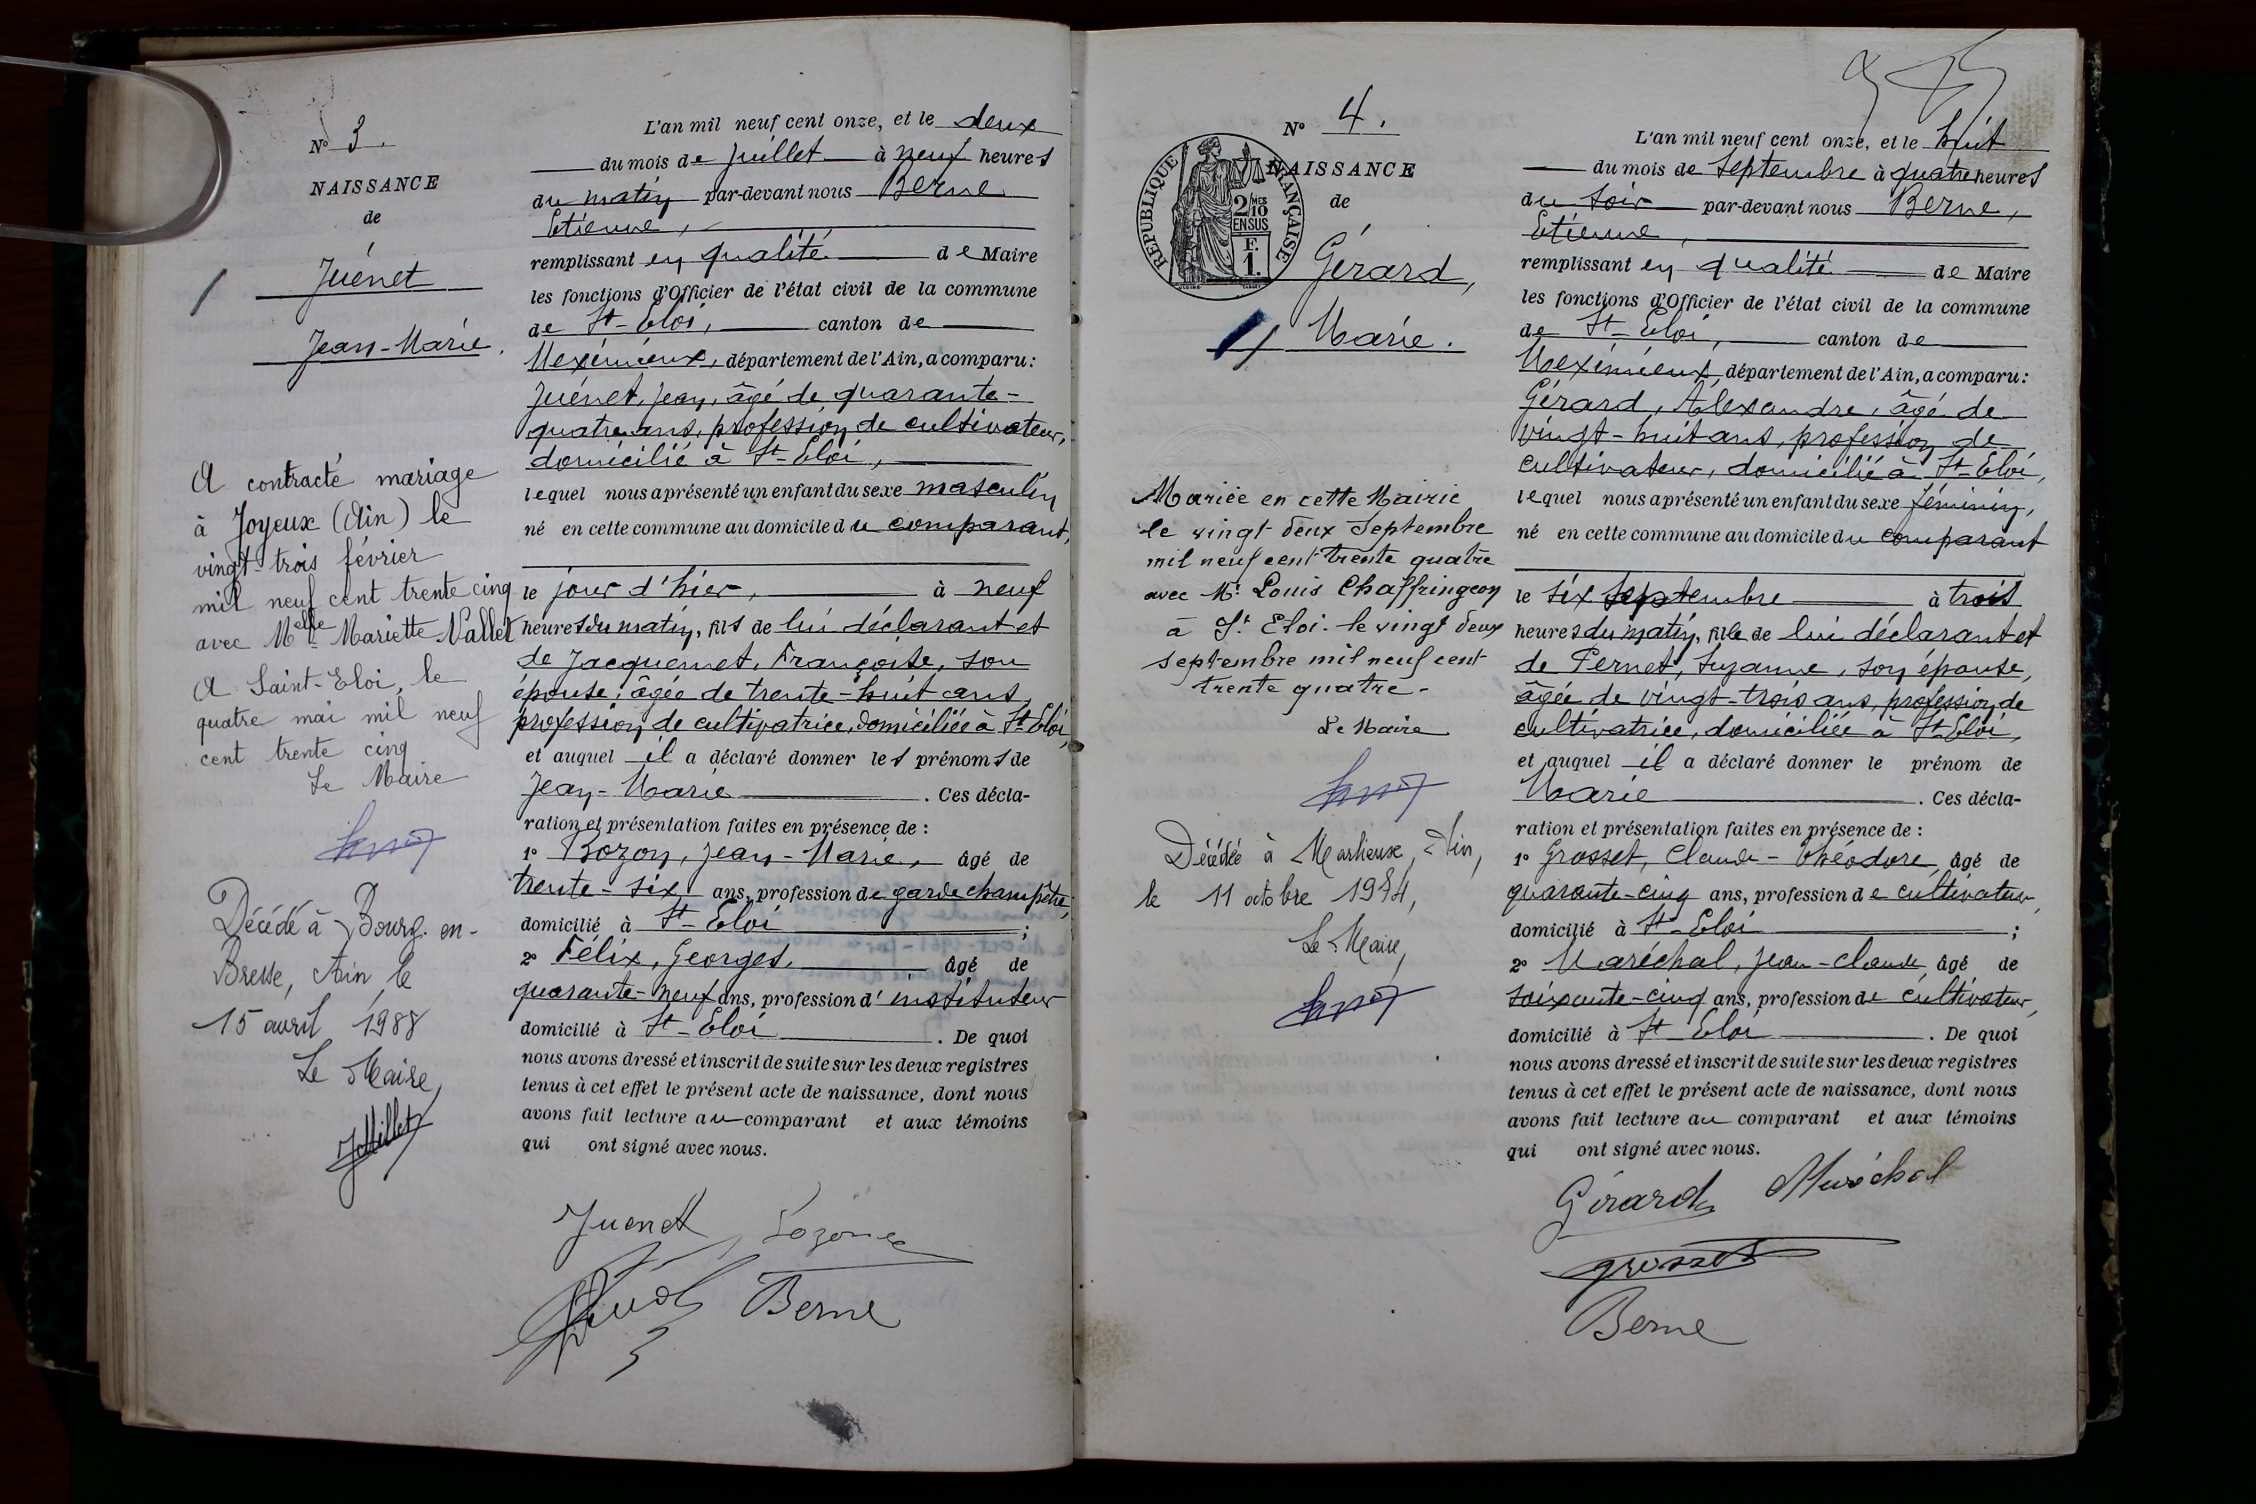 N° 3.
NAISSANCE
de
Juénet
Jean-Marie.
A contracté mariage
à Joyeux (Ain) le
vingt-trois février
mil neuf cent trente cinq
avec Melle Mariette Vallet
A Saint-Eloi, le
quatre mai mil neuf
cent trente cinq
Le Maire
Décédé à Bourg-en-
Bresse, Ain, le
15 avril 1988
Le Maire,
L'an mil neuf cent onze, et le deux
du mois de Juillet à neuf heures
du matin par-devant nous Berne
Etienne,
remplissant en qualité de Maire
les fonctions d'Officier de l'état civil de la commune
de St-Eloi, canton de
Meximieux, département de l'Ain, a comparu:
Juénet, Jean, âgé de quarante-
quatre ans, profession de cultivateur,
domicilié à St-Eloi,
lequel nous a présenté un enfant du sexe masculin
né en cette commune au domicile du comparant,
le jour d'hier, à neuf
heures du matin, fils de lui déclarant et
de Jacquemet, Françoise, son
épouse, âgée de trente-huit ans,
profession de cultivatrice, domiciliée à St-Eloi,
et auquel il a déclaré donner les prénoms de
Jean-Marie. Ces décla-
ration et présentation faites en présence de :
1° Bozon, Jean-Marie, âgé de
trente-six ans, profession de garde champêtre,
domicilié à St-Eloi ;
2° Félix, Georges, âgé de
quarante-neuf ans, profession d'instituteur
domicilié à St-Eloi. De quoi
nous avons dressé et inscrit de suite sur les deux registres
tenus à cet effet le présent acte de naissance, dont nous
avons fait lecture au comparant et aux témoins
qui ont signé avec nous.
Juenet
Berne
N° 4.
NAISSANCE
de
REPUBLIQUE FRANÇAISE
2/10 MES
EN SUS
F.
1.
Gérard,
Marie.
Mariée en cette Mairie
le vingt deux Septembre
mil neuf cent trente quatre
avec Mr. Louis Chaffringeon
à St Eloi. le vingt deux
septembre mil neuf cent
trente quatre-
Le Maire
Décédée à Marlieux, Ain,
le 11 octobre 1974,
Le Maire,
L'an mil neuf cent onze, et le huit
du mois de Septembre à quatre heures
du soir par-devant nous Berne,
Etienne,
remplissant en qualité de Maire
les fonctions d'Officier de l'état civil de la commune
de St-Eloi, canton de
Meximieux, département de l'Ain, a comparu:
Gérard, Alexandre, âgé de
vingt-huit ans, profession de
cultivateur, domicilié à St-Eloi,
lequel nous a présenté un enfant du sexe féminin,
né en cette commune au domicile du comparant
le six septembre à trois
heures du matin, fille de lui déclarant et
de Pernet, Suzanne, son épouse,
âgée de vingt-trois ans, profession de
cultivatrice, domiciliée à St-Eloi,
et auquel il a déclaré donner le prénom de
Marie. Ces décla-
ration et présentation faites en présence de :
1° Grosset, Claude-Théodore, âgé de
quarante-cinq ans, profession de cultivateur,
domicilié à St-Eloi ;
2° Maréchal, Jean-Claude, âgé de
soixante-cinq ans, profession de cultivateur,
domicilié à St-Eloi. De quoi
nous avons dressé et inscrit de suite sur les deux registres
tenus à cet effet le présent acte de naissance, dont nous
avons fait lecture au comparant et aux témoins
qui ont signé avec nous.
Gérard Maréchal
Grosset
Berne